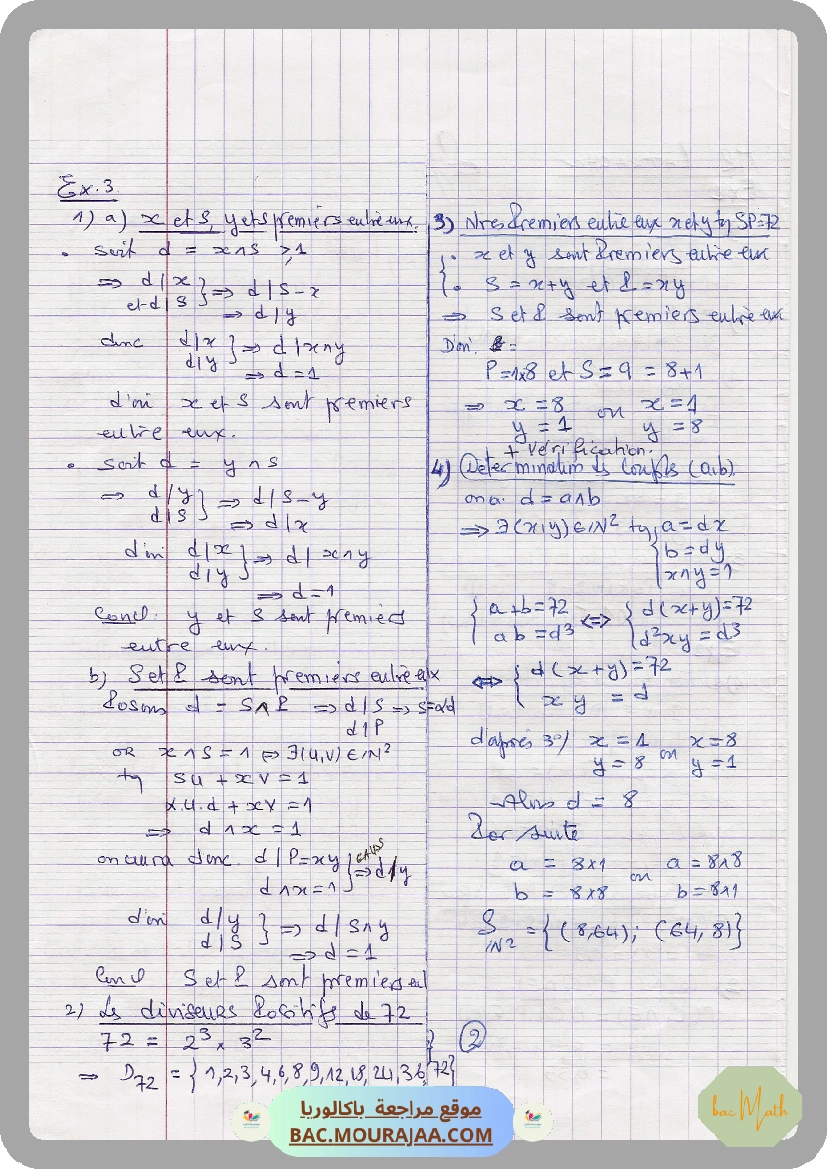 Ex.3
1) a) x et S, y et S premiers entre eux.
• soit d = x∧S ⩾1
⇒ d/x
et d/S } ⇒ d/S-x
⇒ d/y
donc d/x
d/y } ⇒ d/x∧y
⇒ d=1
d'où x et S sont premiers
entre eux.
• soit d = y∧S
⇒ d/y
d/S } ⇒ d/S-y
⇒ d/x
d'où d/x
d/y } ⇒ d/ x∧y
⇒ d=1
Concl: y et S sont premiers
entre eux.
b) S et P sont premiers entre eux
Posons d = S∧P ⇒ d/S ⇒ S=αd
d/P
OR x∧S=1 ⇔ ∃(u,v)∈IN²
tq Su + xv = 1
α.u.d + xv = 1
⇒ d∧x = 1
on aura donc d/P=xy
d∧x=1 } GAUSS ⇒ d/y
d'où d/y
d/S } ⇒ d/S∧y
⇒ d=1
Concl S et P sont premiers
2) Les diviseurs Positifs de 72
72 = 2³ x 3²
⇒ D72 = {1,2,3,4,6,8,9,12,18,24,36,72}
3) Nbres Premiers entre eux x et y tq SP=72
{ • x et y sont Premiers entre eux
• S = x+y et P=xy
⇒ S et P sont premiers entre eux
D'où =
P=1x8 et S=9 = 8+1
⇒ x=8
y=1 ou x=1
y=8
+ Vérification.
4) Détermination des Couples (a,b)
on a d=a∧b
⇒ ∃(x,y)∈IN² tq { a=dx
b=dy
x∧y=1
{ a+b=72
ab=d³ ⇔ { d(x+y)=72
d²xy=d³
⇔ { d(x+y)=72
xy = d
d'après 3°/ x=1
y=8 ou x=8
y=1
Alors d = 8
Par suite
a = 8x1
b = 8x8 ou a=8x8
b=8x1
S IN² = {(8,64); (64,8)}
2
موقع مراجعة باكالوريا
BAC.MOURAJAA.COM
bac Math